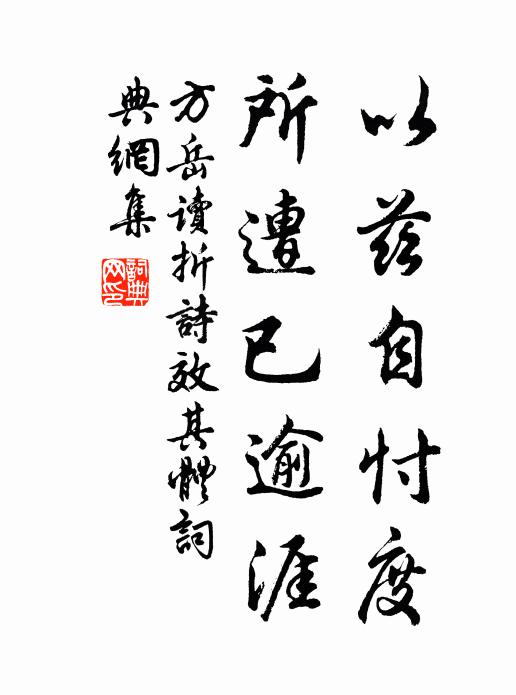 以茲自忖度
所遭已逾涯
方岳讀折詩效其體詞
典網集
詞典
网印